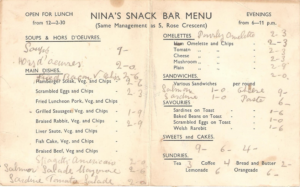 OPEN FOR LUNCH
from 12—2-30
NINA'S SNACK BAR MENU
(Same Management as 5, Rose Crescent)
EVENINGS
from 6—11 p.m.
SOUPS & HORS D'OEUVRES.
Soup 9-
Hors d'oeuvres 2-0
MAIN DISHES.
Hamburger Steak, Veg. and Chips
Scrambled Eggs and Chips 2-
Fried Luncheon Pork, Veg. and Chips
Grilled Sausage(s) Veg. and Chips 1-9
Braised Rabbit, Veg. and Chips 2-0
Liver Steak, Veg. and Chips
Fish Cake, Veg. and Chips
Braised Beef, Veg and Chips
Spaghetti Americano 2-0
Salmon Salade
Sardine Tomato Salade 2-0
OMELETTES
Omelette and Chips
Tomato
Cheese
Mushroom
Plain
SANDWICHES.
Various Sandwiches per round
Salmon 1-0
Sardine
Cheese 9-
Paste 6-
SAVOURIES
Sardines on Toast 1-6
Baked Beans on Toast 1-6
Scrambled Eggs on Toast
Welsh Rarebit
SWEETS and CAKES.
9- 6- 4-
SUNDRIES.
Tea 3 Coffee 4 Bread and Butter 2-
Lemonade 6 Orangeade 6-